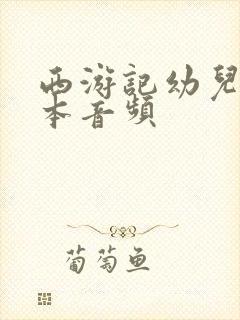 西游記幼兒
本音頻
葡萄鱼